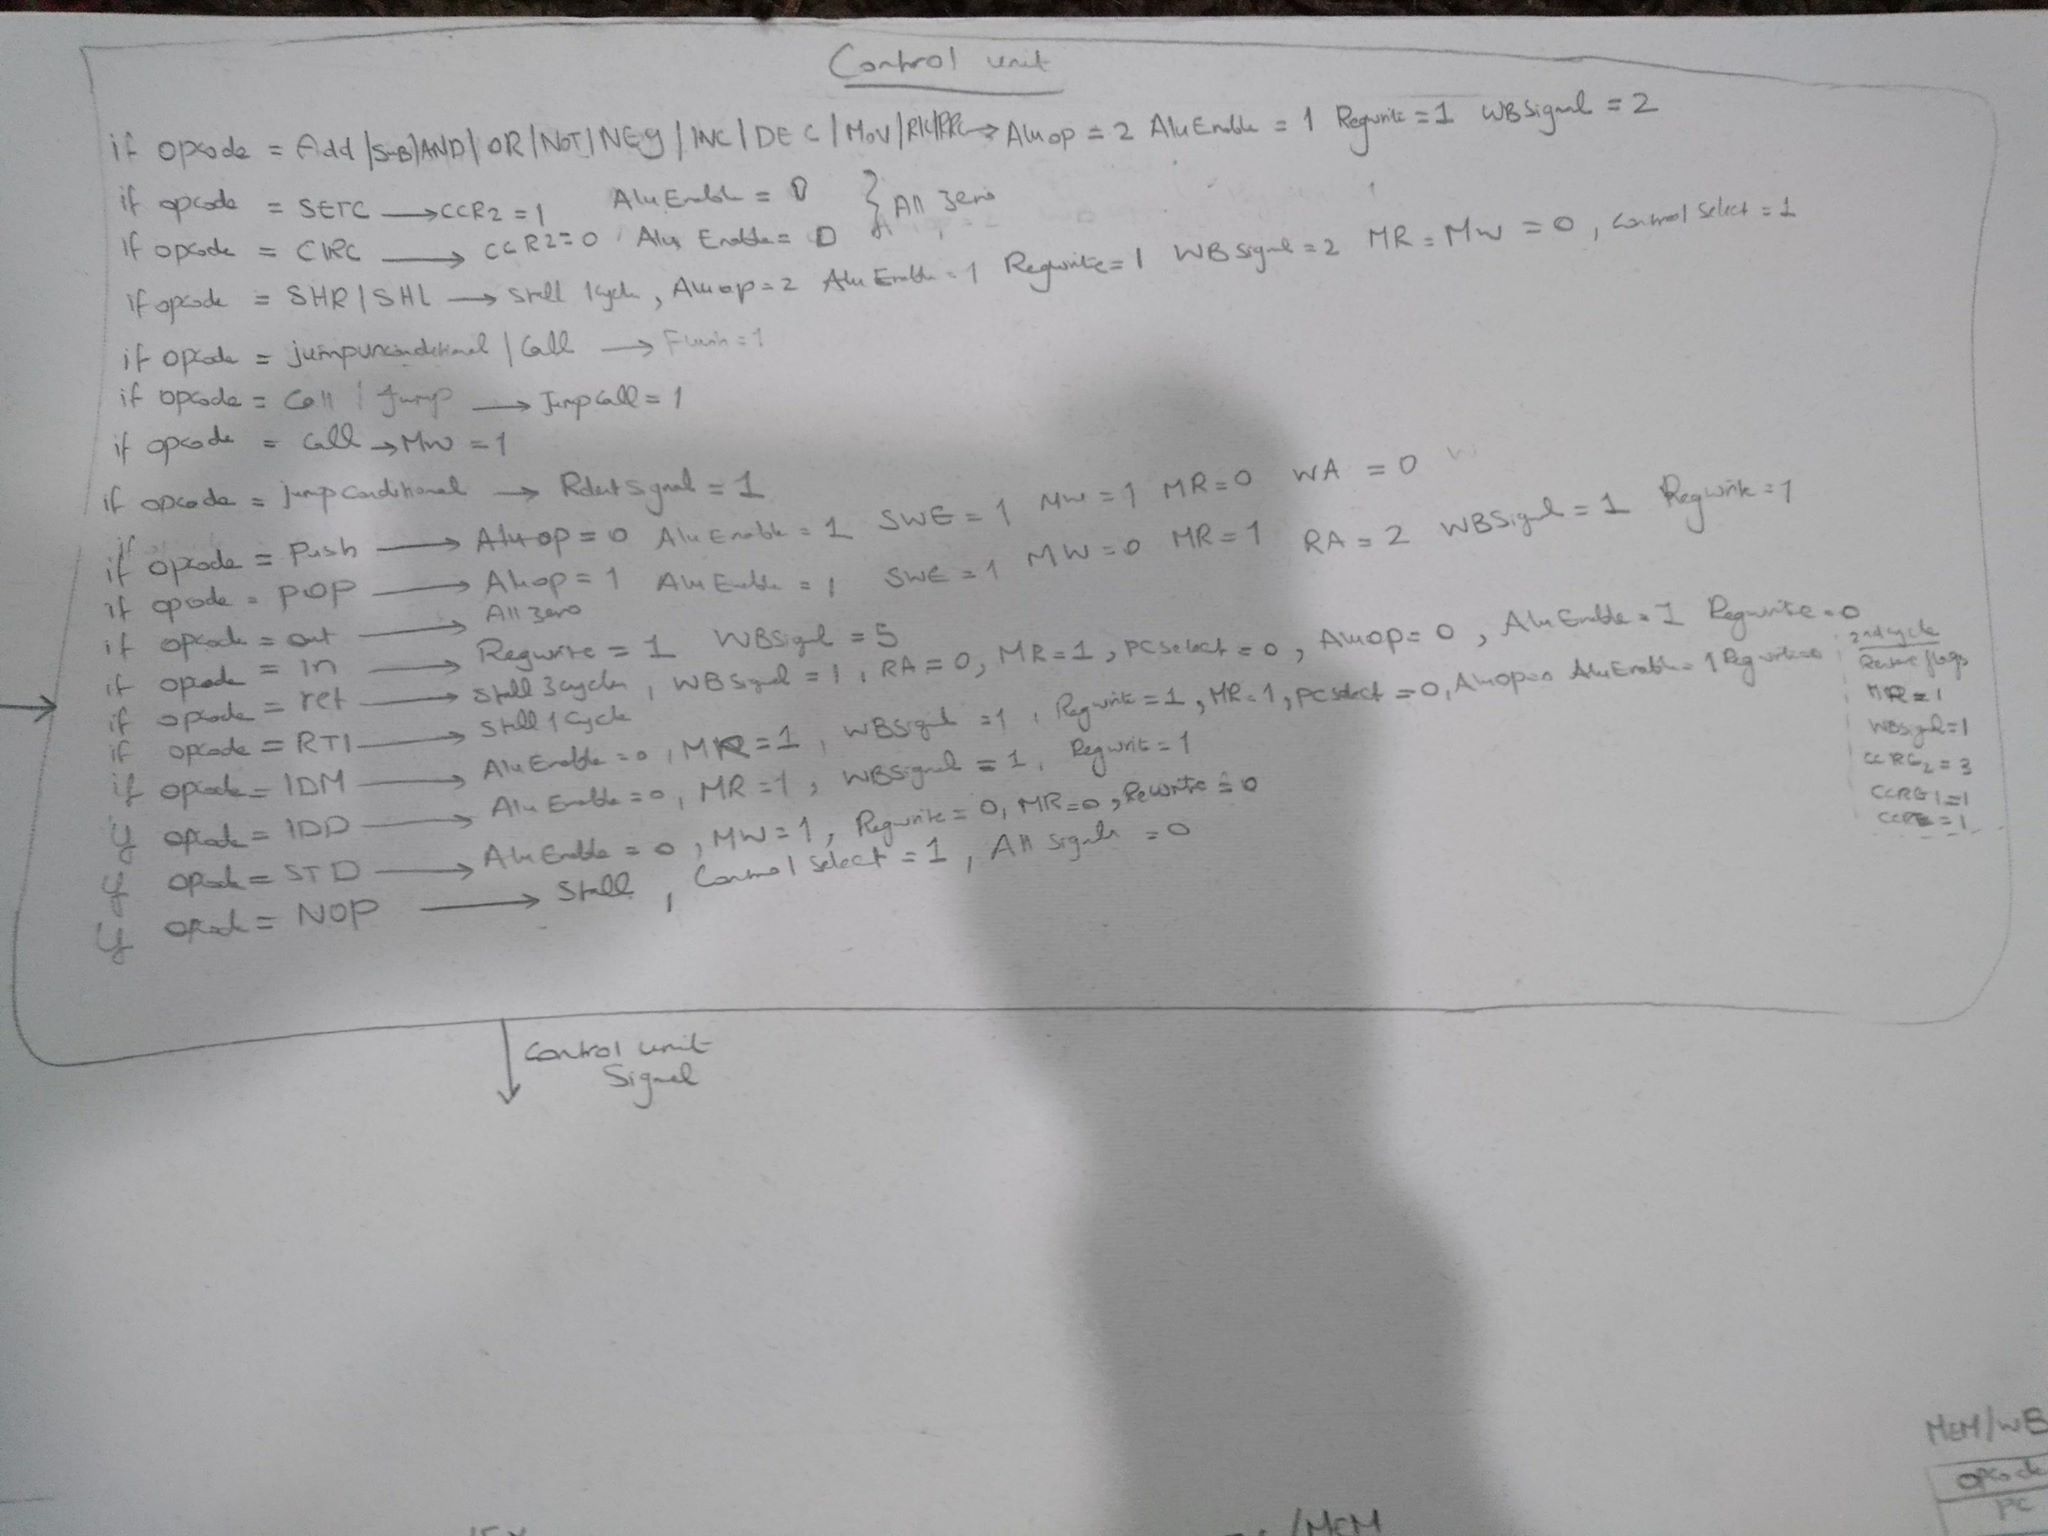 Control unit
if opcode = Add |SUB|AND| OR |NOT|NEG |INC| DEC | MOV |RlC|RRC → Alu op = 2 Alu Enable = 1 Regwrite = 1 WBSignal = 2
if opcode = SETC → CCR2 = 1 Alu Enable = 0 } All zero
if opcode = ClRC → CCR2=0 Alu Enable = 0
if opcode = SHR | SHL → Stall 1 cycle , Alu op = 2 Alu Enable = 1 Regwrite = 1 WB Signal = 2 MR = MW = 0 , Control Select = 1
if opcode = jumpunconditional | Call → Flush = 1
if opcode = Call | Jump → Jump Call = 1
if opcode = Call → MW = 1
if opcode = jump conditional → Signal = 1
if opcode = Push → Alu op = 0 Alu Enable = 1 SWE = 1 MW = 1 MR = 0 WA = 0
if opcode = POP → Alu op = 1 Alu Enable = 1 SWE = 1 MW = 0 MR = 1 RA = 2 WBSignal = 1 Regwrite = 1
if opcode = out → All zero
if opcode = in → Regwrite = 1 WBSignal = 5
if opcode = ret → Stall 3 cycles , WBSignal = 1 , RA = 0, MR = 1 , PC select = 0 , Alu op = 0 , Alu Enable = 1 Regwrite = 0
if opcode = RTI → Stall 1 cycle
if opcode = lDM → Alu Enable = 0 , MR = 1 , WBSignal = 1 , Regwrite = 1 , MR = 1 , PC select = 0, Alu op = Alu Enable = 1 Regwrite = 0
if opcode = lDD → Alu Enable = 0, MR = 1 , WBSignal = 1, Regwrite = 1
if opcode = STD → Alu Enable = 0 , MW = 1 , Regwrite = 0, MR = 0 , Rewrite = 0
if opcode = NOP → Stall , Control Select = 1 , All signals = 0
2nd cycle
flags
MR = 1
WBsignal = 1
CCRG2 = 3
CCRG1 = 1
= 1
Control unit
Signal
MEM/WB
opcode
PC
/MEM